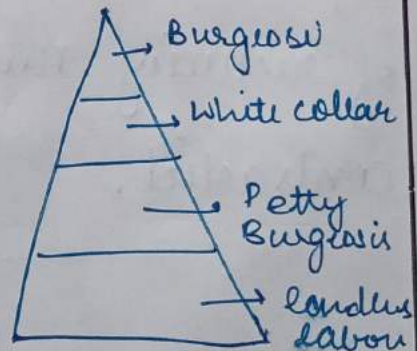 Burgeosi
White collar
Petty
Burgeosis
landless
labour